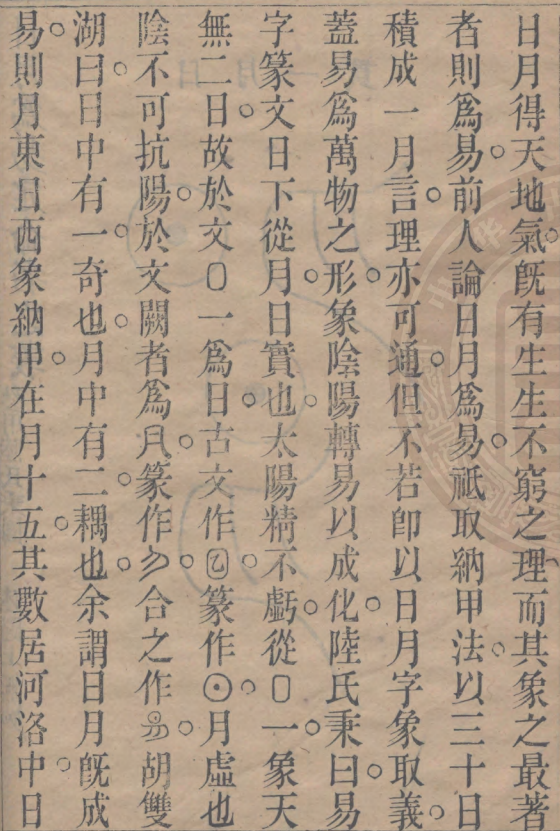 日月得天地氣旣有生生不窮之理而其象之最著
者則爲易前人論日月爲易祗取納甲法以三十日
積成一月言理亦可通但不若卽以日月字象取義
蓋易爲萬物之形象陰陽轉易以成化陸氏秉曰易
字篆文日下從月日實也太陽精不虧從〇一象天
無二日故於文〇一爲日古文作篆作⊙月虛也
陰不可抗陽於文闕者爲月篆作合之作胡雙
湖曰日中有一奇也月中有二耦也余謂日月旣成
易則月東日西象納甲在月十五其數居河洛中日